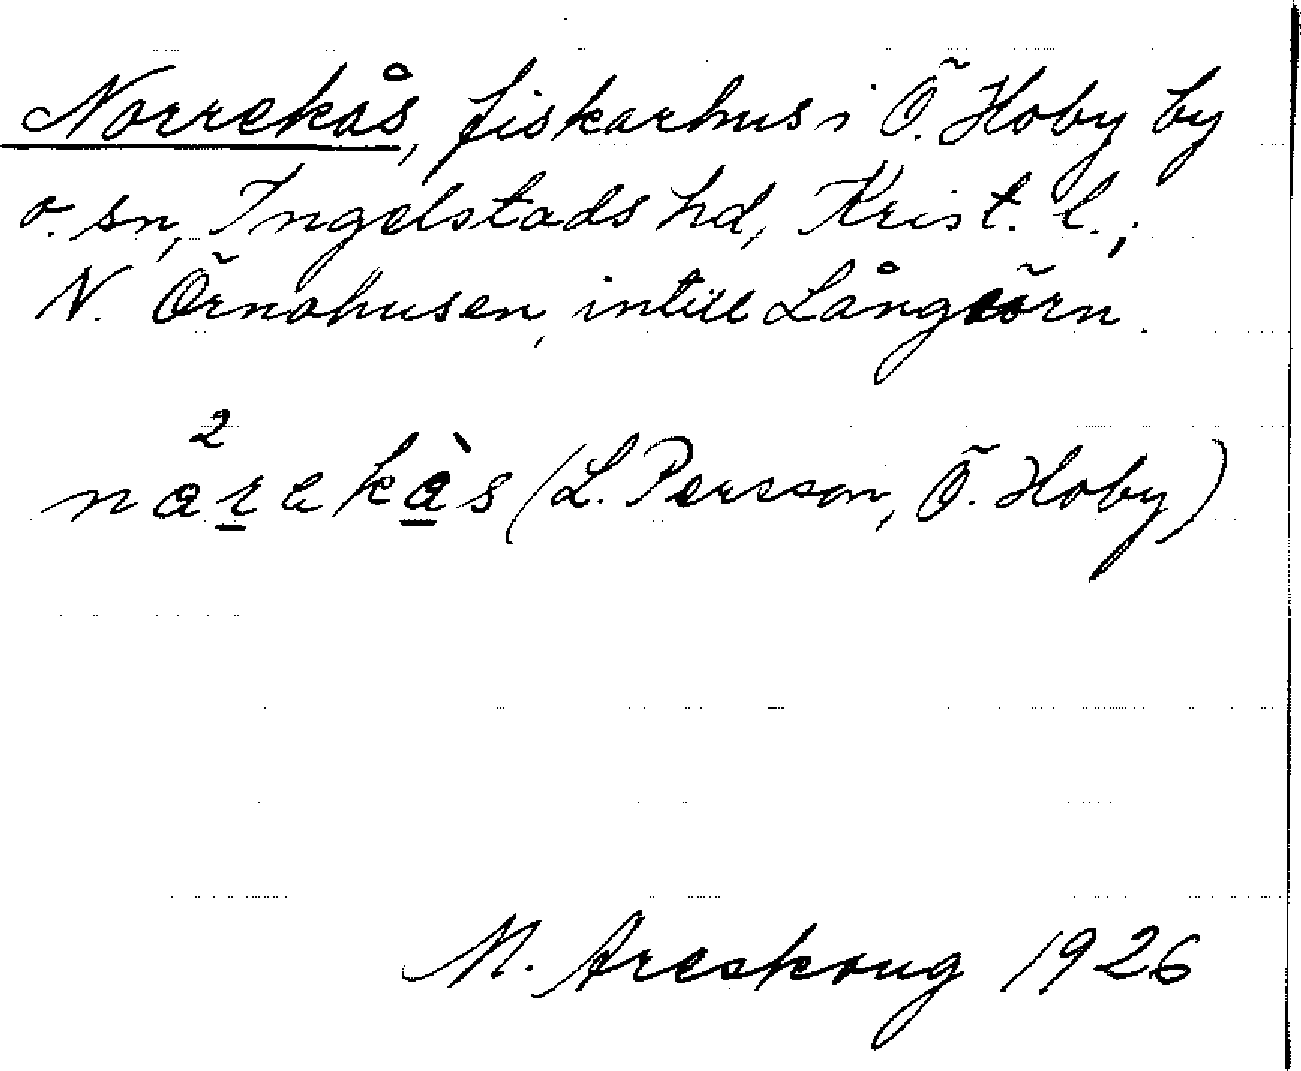 Norrekås, fiskarhus i Ö. Hoby by
o. sn, Ingelstads hd, Krist. l.,
N. Örnahusen, intill Långörn.
2
narekàs (L. Persson, Ö. Hoby)
M. Areskoug 1926